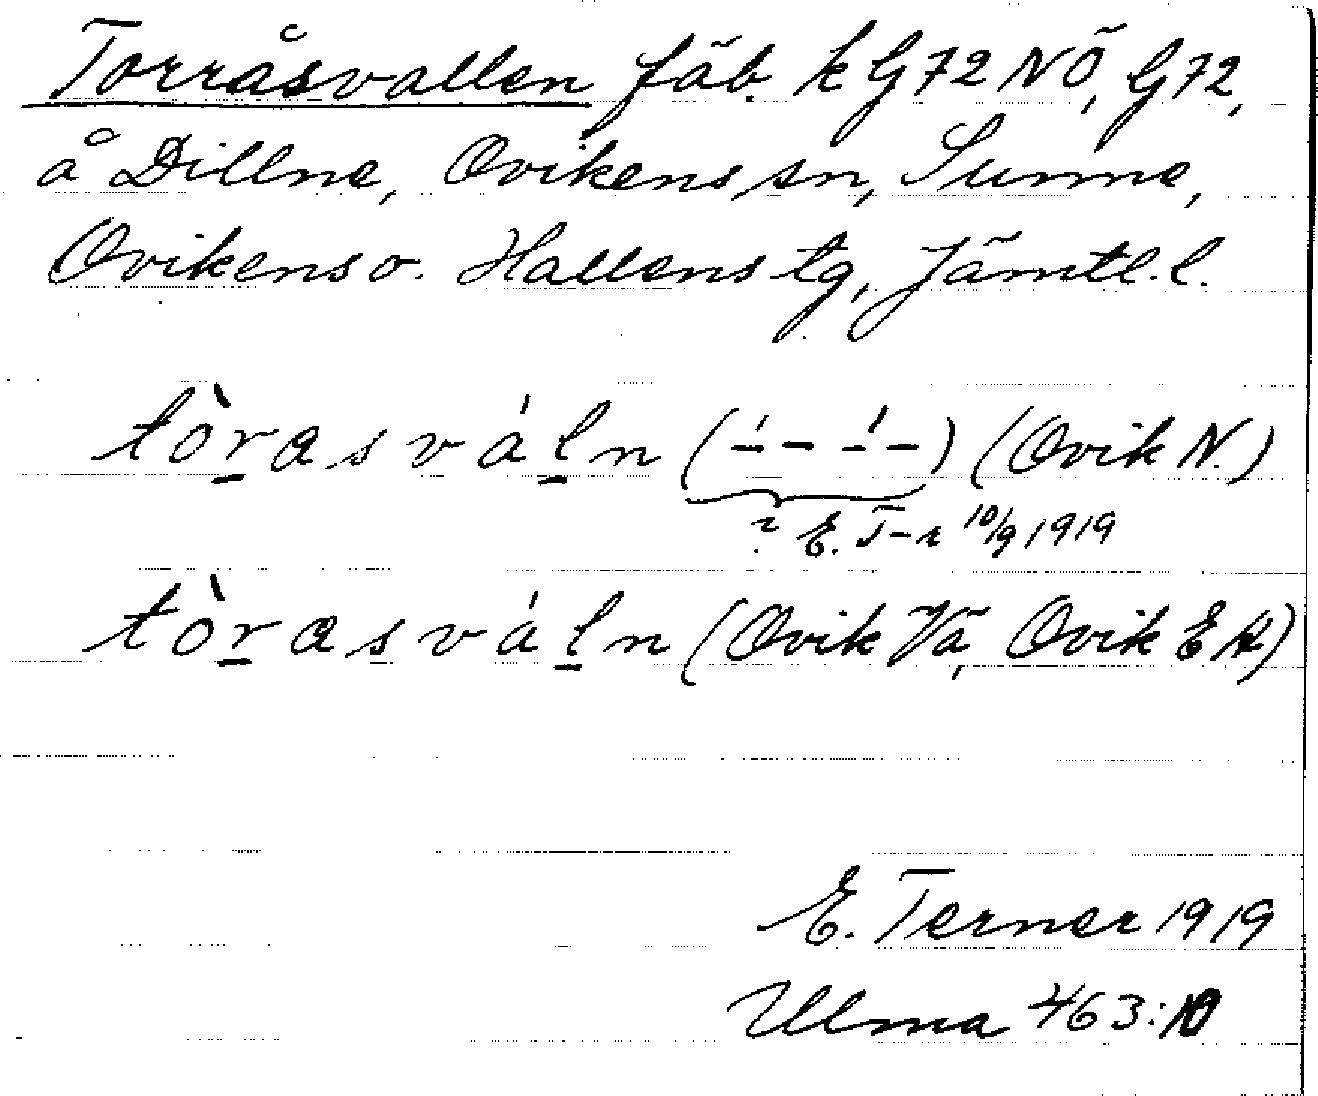 Torråsvallen fäb. k G72 NÖ, G72,
å Dillne, Ovikens sn, Sunne,
Ovikens o. Hallens tg, Jämtl. l.
tòrasváln (–́ – –́ –) (Ovik N.)
? E. T-r 10/9 1919
tòrasváln (Ovik Vä, Ovik E A)
E. Terner 1919
Ulma 463:10